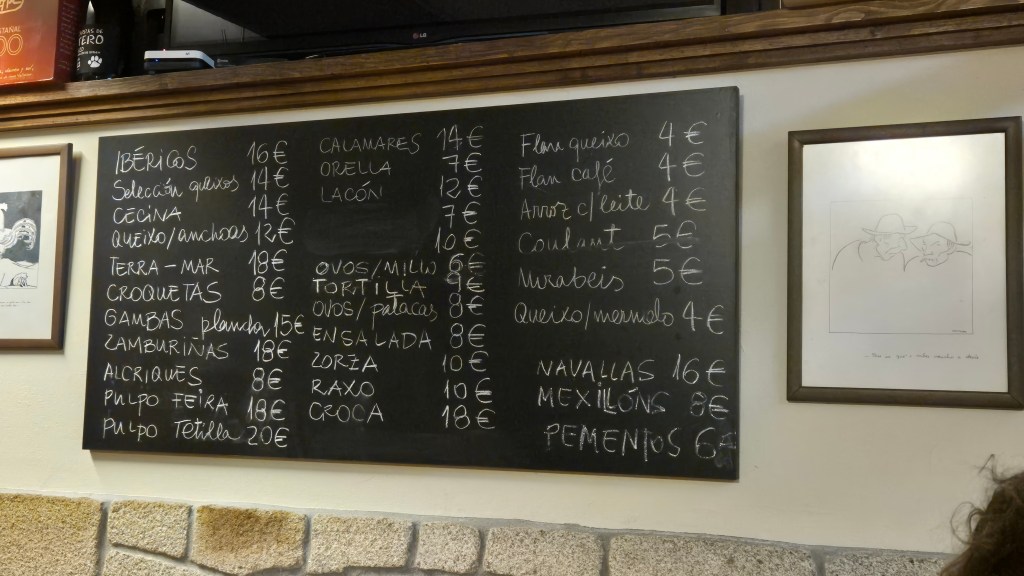 LG
ERO
IBÉRICOS 16€
Selección queixos 14€
CECINA 14€
QUEIXO/anchoas 12€
TERRA-MAR 18€
CROQUETAS 8€
GAMBAS plancha 15€
ZAMBURIÑAS 18€
ALCRIQUES 8€
PULPO FEIRA 18€
PULPO Tetilla 20€
CALAMARES 14€
ORELLA 7€
LACÓN 12€
7€
10€
OVOS/MILLO 6€
TORTILLA
OVOS/patacas 8€
ENSALADA 8€
ZORZA 10€
RAXO 10€
CROCA 18€
Flan queixo 4€
Flan café 4€
Arroz c/leite 4€
Coulant 5€
Mirabeis 5€
Queixo/mermelo 4€
NAVALLAS 16€
MEXILLÓNS 8€
PEMENTOS 6€